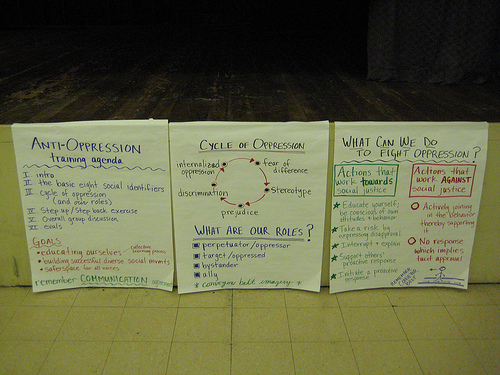 ANTI-OPPRESSION
training agenda
I. intro
II. the basic eight social identifiers
III. cycle of oppression
(and our roles)
IV. Step up/Step back exercise
V. Overall group discussion
VI. evals
GOALS
• educating ourselves
collective learning process
• building successful diverse social mvmts
• safer space for all voices
remember COMMUNICATION
CYCLE OF OPPRESSION
internalized
oppression
fear of
difference
stereotype
prejudice
discrimination
WHAT ARE OUR ROLES?
perpetuator/oppressor
target/oppressed
bystander
ally
WHAT CAN WE DO
TO FIGHT OPPRESSION?
Actions that
work towards
social justice
Educate yourself;
be conscious of own
attitudes + behavior
Take a risk by
expressing disapproval
Interrupt + explain
Support others'
proactive response
Initiate a proactive
response
Actions that
work AGAINST
social justice
Actively joining
in the behavior
thereby supporting
it
No response
which implies
tacit approval